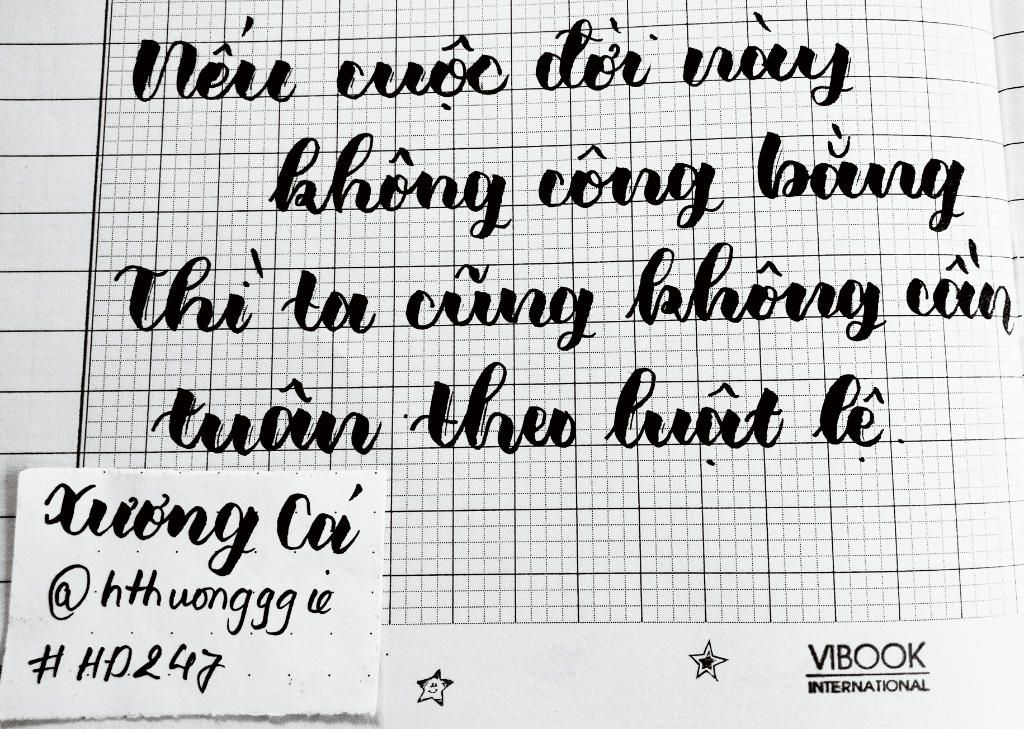 Nếu cuộc đời này
không công bằng
Thì ta cũng không cần
tuân theo luật lệ.
Xương Cá
@hthuonggg ie
#HD247
VIBOOK
INTERNATIONAL